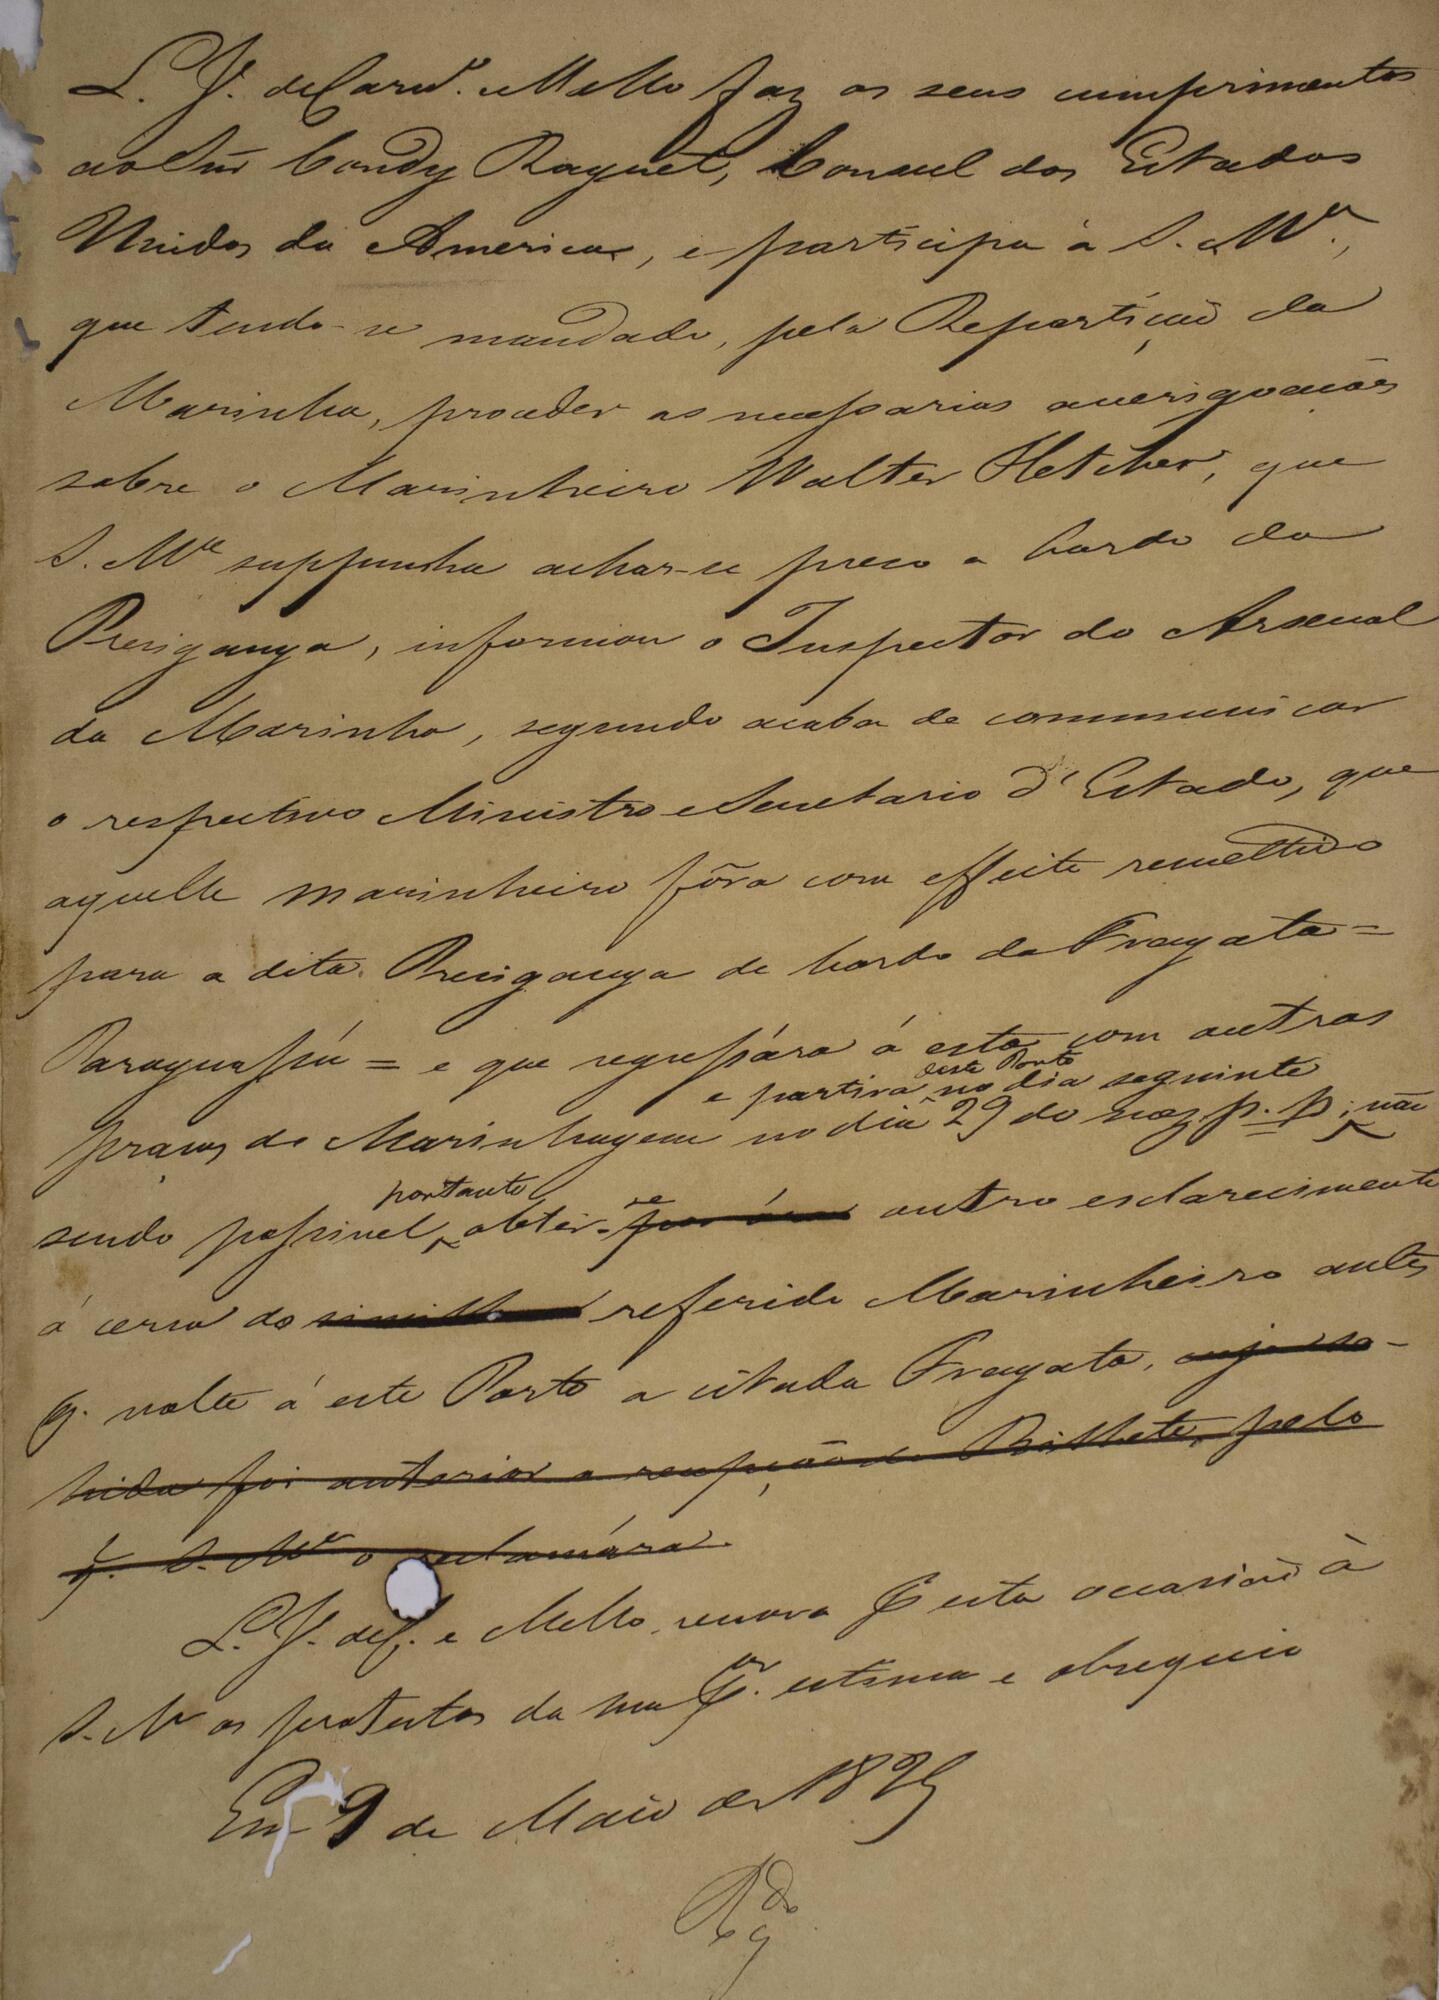 L. J. de Carv.º e Mello faz os seus cumprimentos
ao Snr Condy Raguet, Consul dos Estados
Unidos da America, e participa á S. M.ce,
que tendo-se mandado, pela Repartição da
Marinha, proceder as necessarias averigoações
sobre o Marinheiro Walter Fletcher, que
S. M.ce suppunha achar-se preso a bordo da
Presiganga, informou o Inspector do Arsenal
da Marinha, segundo acaba de communicar
o respectivo Ministro e Secretario d'Estado, que
aquelle marinheiro fôra com effeito remettido
para a dita Presiganga de bordo da Fragata =
Paraguassú = e que regressára á esta com outras
e partira deste Porto no dia seguinte
praças de Marinhagem no dia 29 do mez p. p.; não
portanto
sendo possivel obter-se outro esclarecimento
á cerca do referido Marinheiro antes
q. volte á este Porto a citada Fragata, cuja sa-
hida foi anterior a recepção do Bilhete, pelo
q. S. M.ce o reclamára.
L. J. de C. e Mello, renova esta occasião à
S. M.ce os protestos da sua estima e obsequio
Em 9 de Maio de 1825